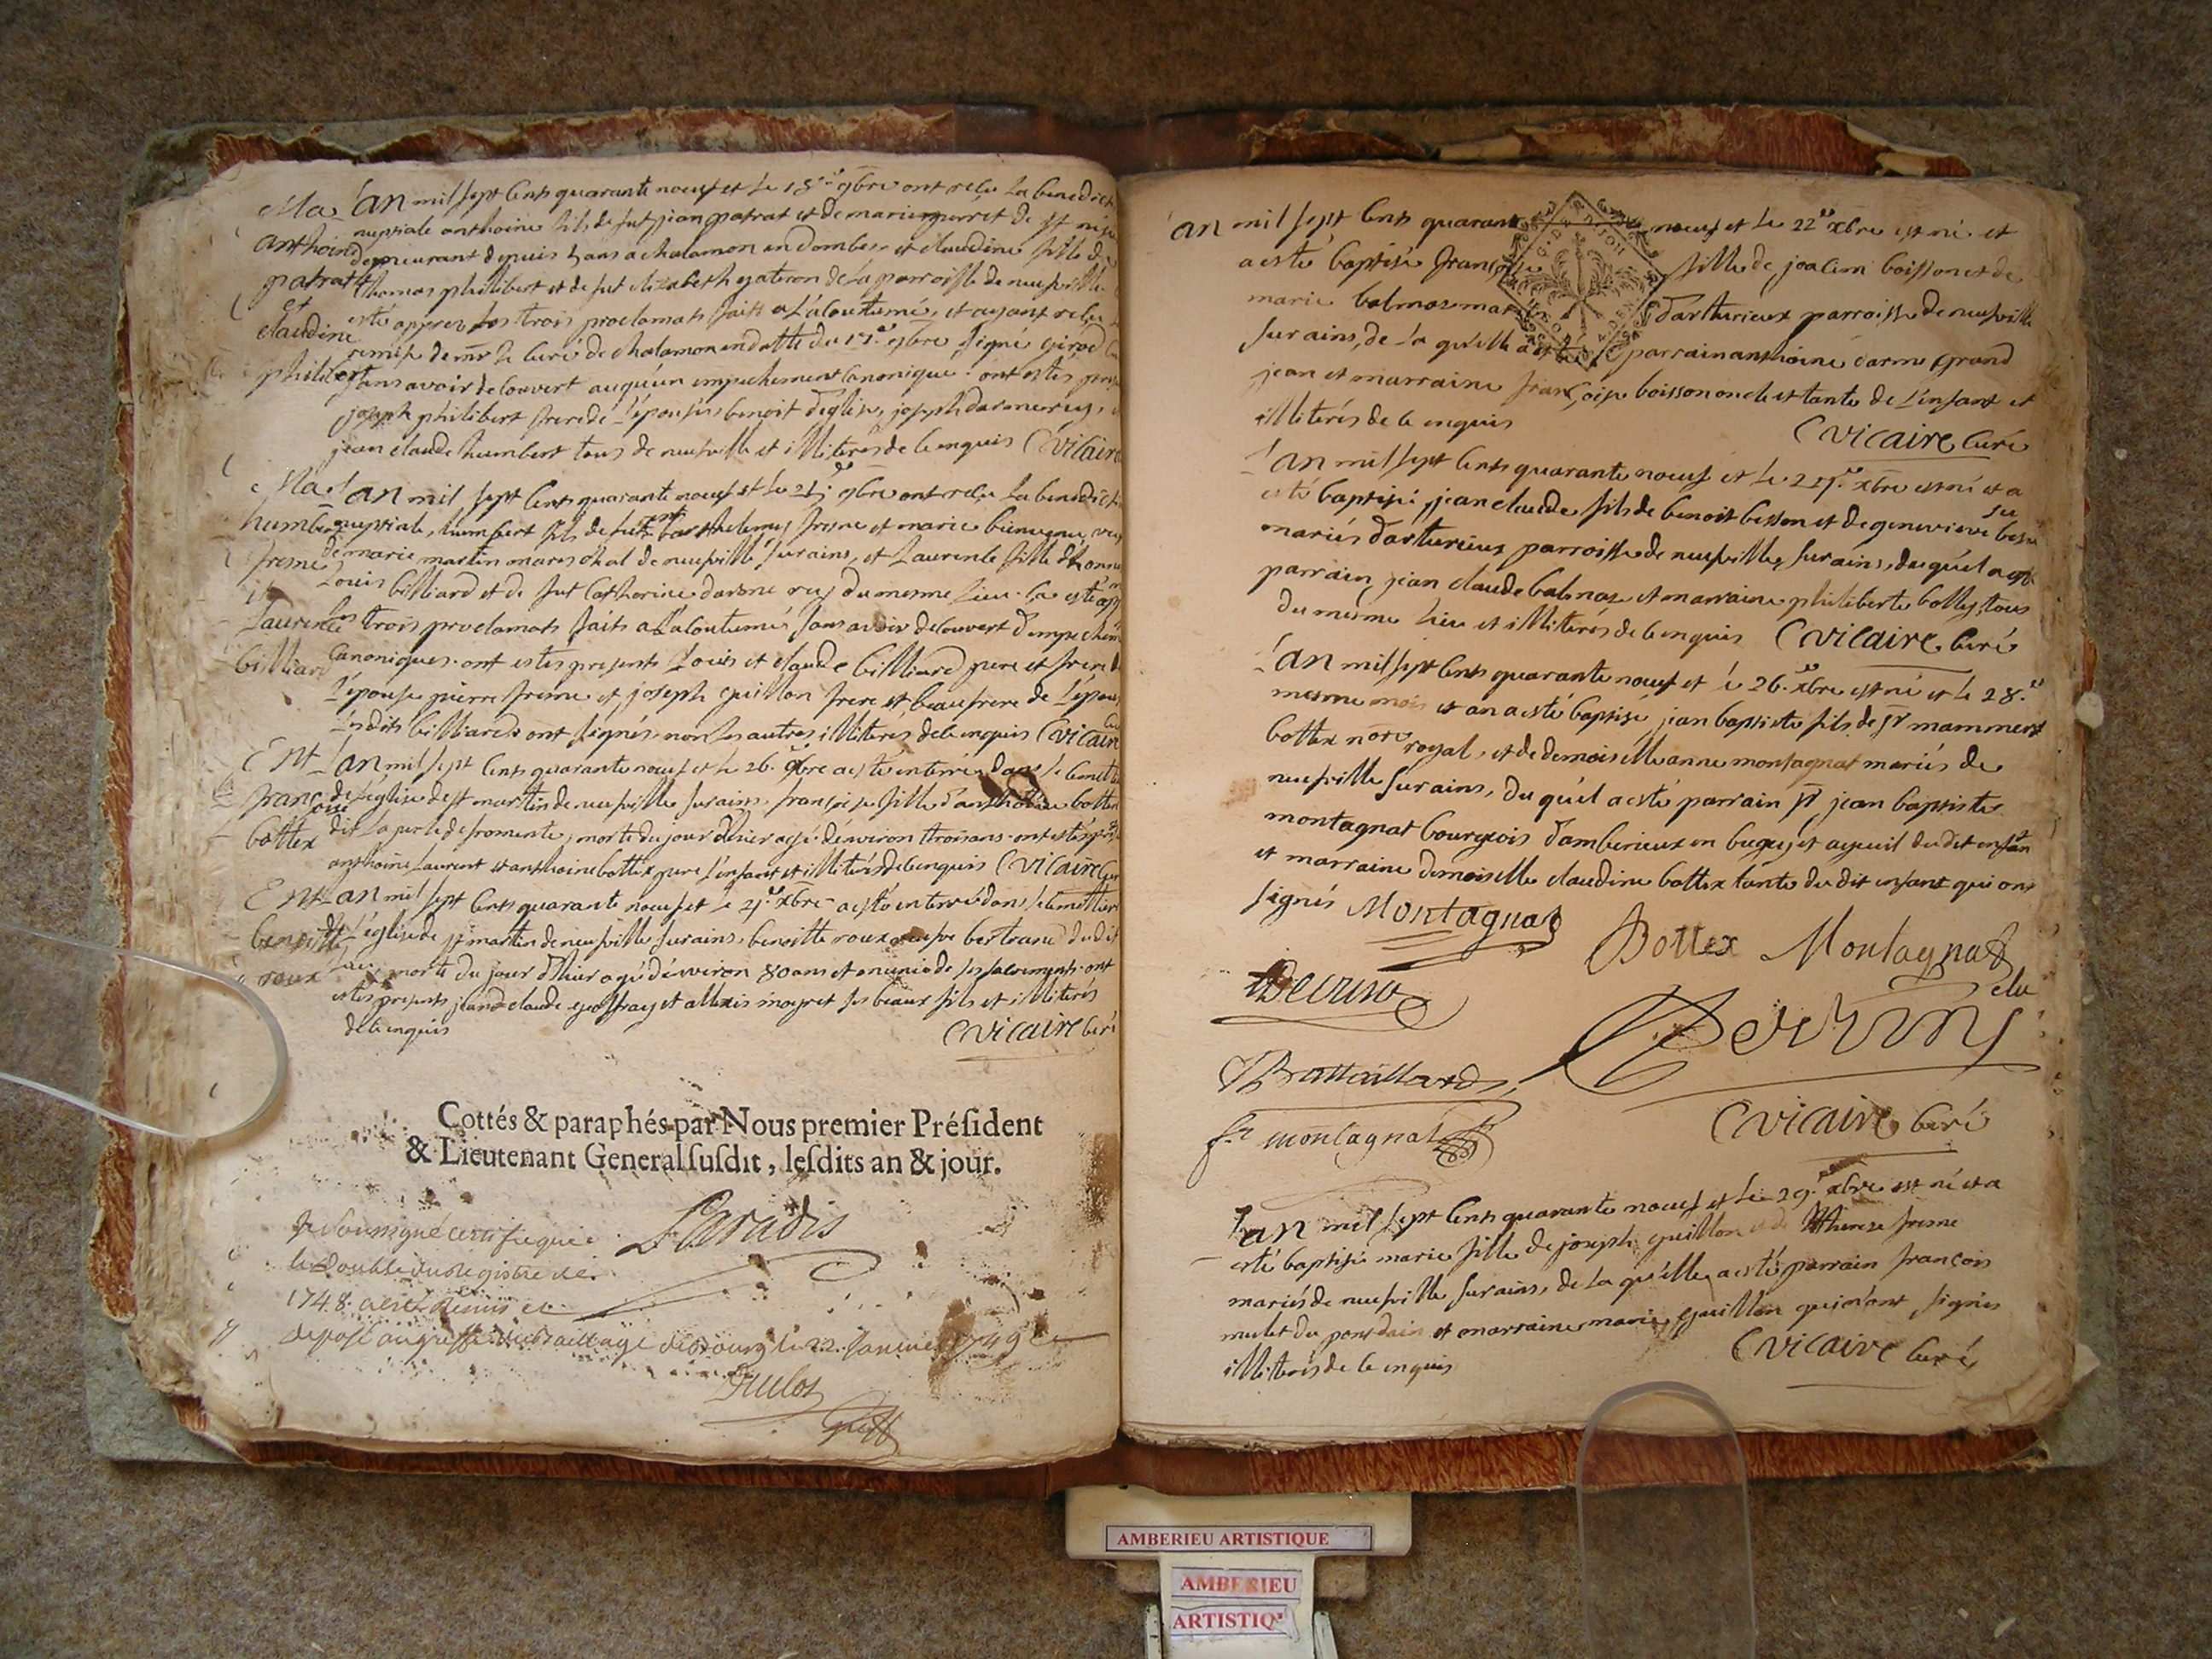 Ma L'an mil sept cents quarante noeuf et le 18.e 9bre ont reçu la benedict
nuptiale anthoine fils de fut jean patrat et de marie perret de st
anthoine demeurant depuis 5 ans a chalamon en dombes et claudine fille de
patrat thomas philibert et de fut elizabeth gateron de la parroisse de neufville
et
claudine esté apprez les trois proclamats faits a l'acoutumé, et ayant reçu
remise de mr le curé de chalamon en datte du 17.e 9bre signé girod
philibert sans avoir decouvert auqu'un empechement canonique. ont estés
joseph philibert frere de l'épouse, benoit deglise, joseph darmerey,
jean claude humbert tous de neufville et illiterés de ce enquis Vicaire
Ma L'an mil sept cents quarante noeuf et le 25 9bre ont reçu la benedicti
humbert nuptiale, humbert fils de fut barthelemy fresne et marie bienvenu, veuf
fresne de marie martin mareschal de neufville sur ains, et laurence fille d'honne
et Louis billiard et de fut Catherine darmerey du mesme lieu. ce esté ap
Laurence les trois proclamats faits a l'acoutumé sans avoir decouvert d'empechem
billiard Canoniques. ont estés presents Louis et claude billiard pere et frere de
l'épouse pierre fresne et joseph guillon frere et beaufrere de l'époux
lesdits billiards ont signés non les autres illiterés de ce enquis Vicaire
Ent L'an mil sept cents quarante noeuf et le 26. 9bre a esté enterrée dans le cimet
françoise de l'église de st martin de neufville sur ains, françoise fille d'anthoine bottex
bottex dit la perle de fromente, morte du jour d'hier agé d'environ trois ans. ont estés
anthoine Laurent et anthoine bottex pere l'enfant et illiterés de ce enquis Vicaire
Ent L'an mil sept cents quarante noeuf et le 21.e xbre a esté enterré dans le cimettiere
benoitte de l'église de st martin de neufville sur ains, benoitte roux veufve bertrand dudit
roux lieu, morte du jour d'hier agé d'environ 80 ans et munie de ses sacrements. ont
estés presents jean claude geoffray et allexis moyret ses beaux fils et illiterés
de ce enquis Vicaire curé
Cottés & paraphés par Nous premier Préſident
& Lieutenant General ſuſdit, leſdits an & jour.
Paradis
Je soussigné certifie que
le double du registre de
1748. a esté remis et
deposé au greffe du bailliage de bourg le 22. Janvier 1749
Duclos
Greff
L'an mil sept cents quarante noeuf et le 22.e xbre est né et
a esté baptisé françoise fille de joacim boisson et de
marie balmoz mariés d'arturieux parroisse de neufville
sur ains, de la qu'elle a esté parrain anthoine carme grand
jean et marraine françoise boisson oncle et tante de l'enfant et
illiterés de ce enquis Vicaire curé
L'an mil sept cents quarante noeuf et le 25.e xbre est né et a
esté baptisé, jean claude fils de benoit besson et de genevieve
mariés d'arturieux parroisse de neufville sur ains, du qu'el a esté
parrain jean claude balmoz et marraine philiberte bolley, tous
du mesme lieu et illiterés de ce enquis Vicaire curé
L'an mil sept cents quarante noeuf et le 26.e xbre est né et le 28.e
mesme mois et an a esté baptisé jean baptiste fils de sr mammert
bottex nore royal, et de demoiselle anne montagnat mariés de
neufville sur ains, du qu'el a esté parrain sr jean baptiste
montagnat bourgeois d'amberieux en bugey et ayeuil dudit enfan
et marraine demoiselle claudine bottex tante du dit enfant qui ont
signés Montagnat
Bottex Montagnat
elu
f.s montagnat
Vicaire curé
L'an mil sept cents quarante noeuf et le 29.e xbre est né et a
esté baptisé marie fille de joseph guillon et de Therese fresne
mariés de neufville sur ains, de la qu'elle a esté parrain françois
mulet du pont dain et marraine marie guillon qui n'ont signés
illiterés de ce enquis Vicaire curé
AMBERIEU ARTISTIQUE
AMBERIEU
ARTISTIQ